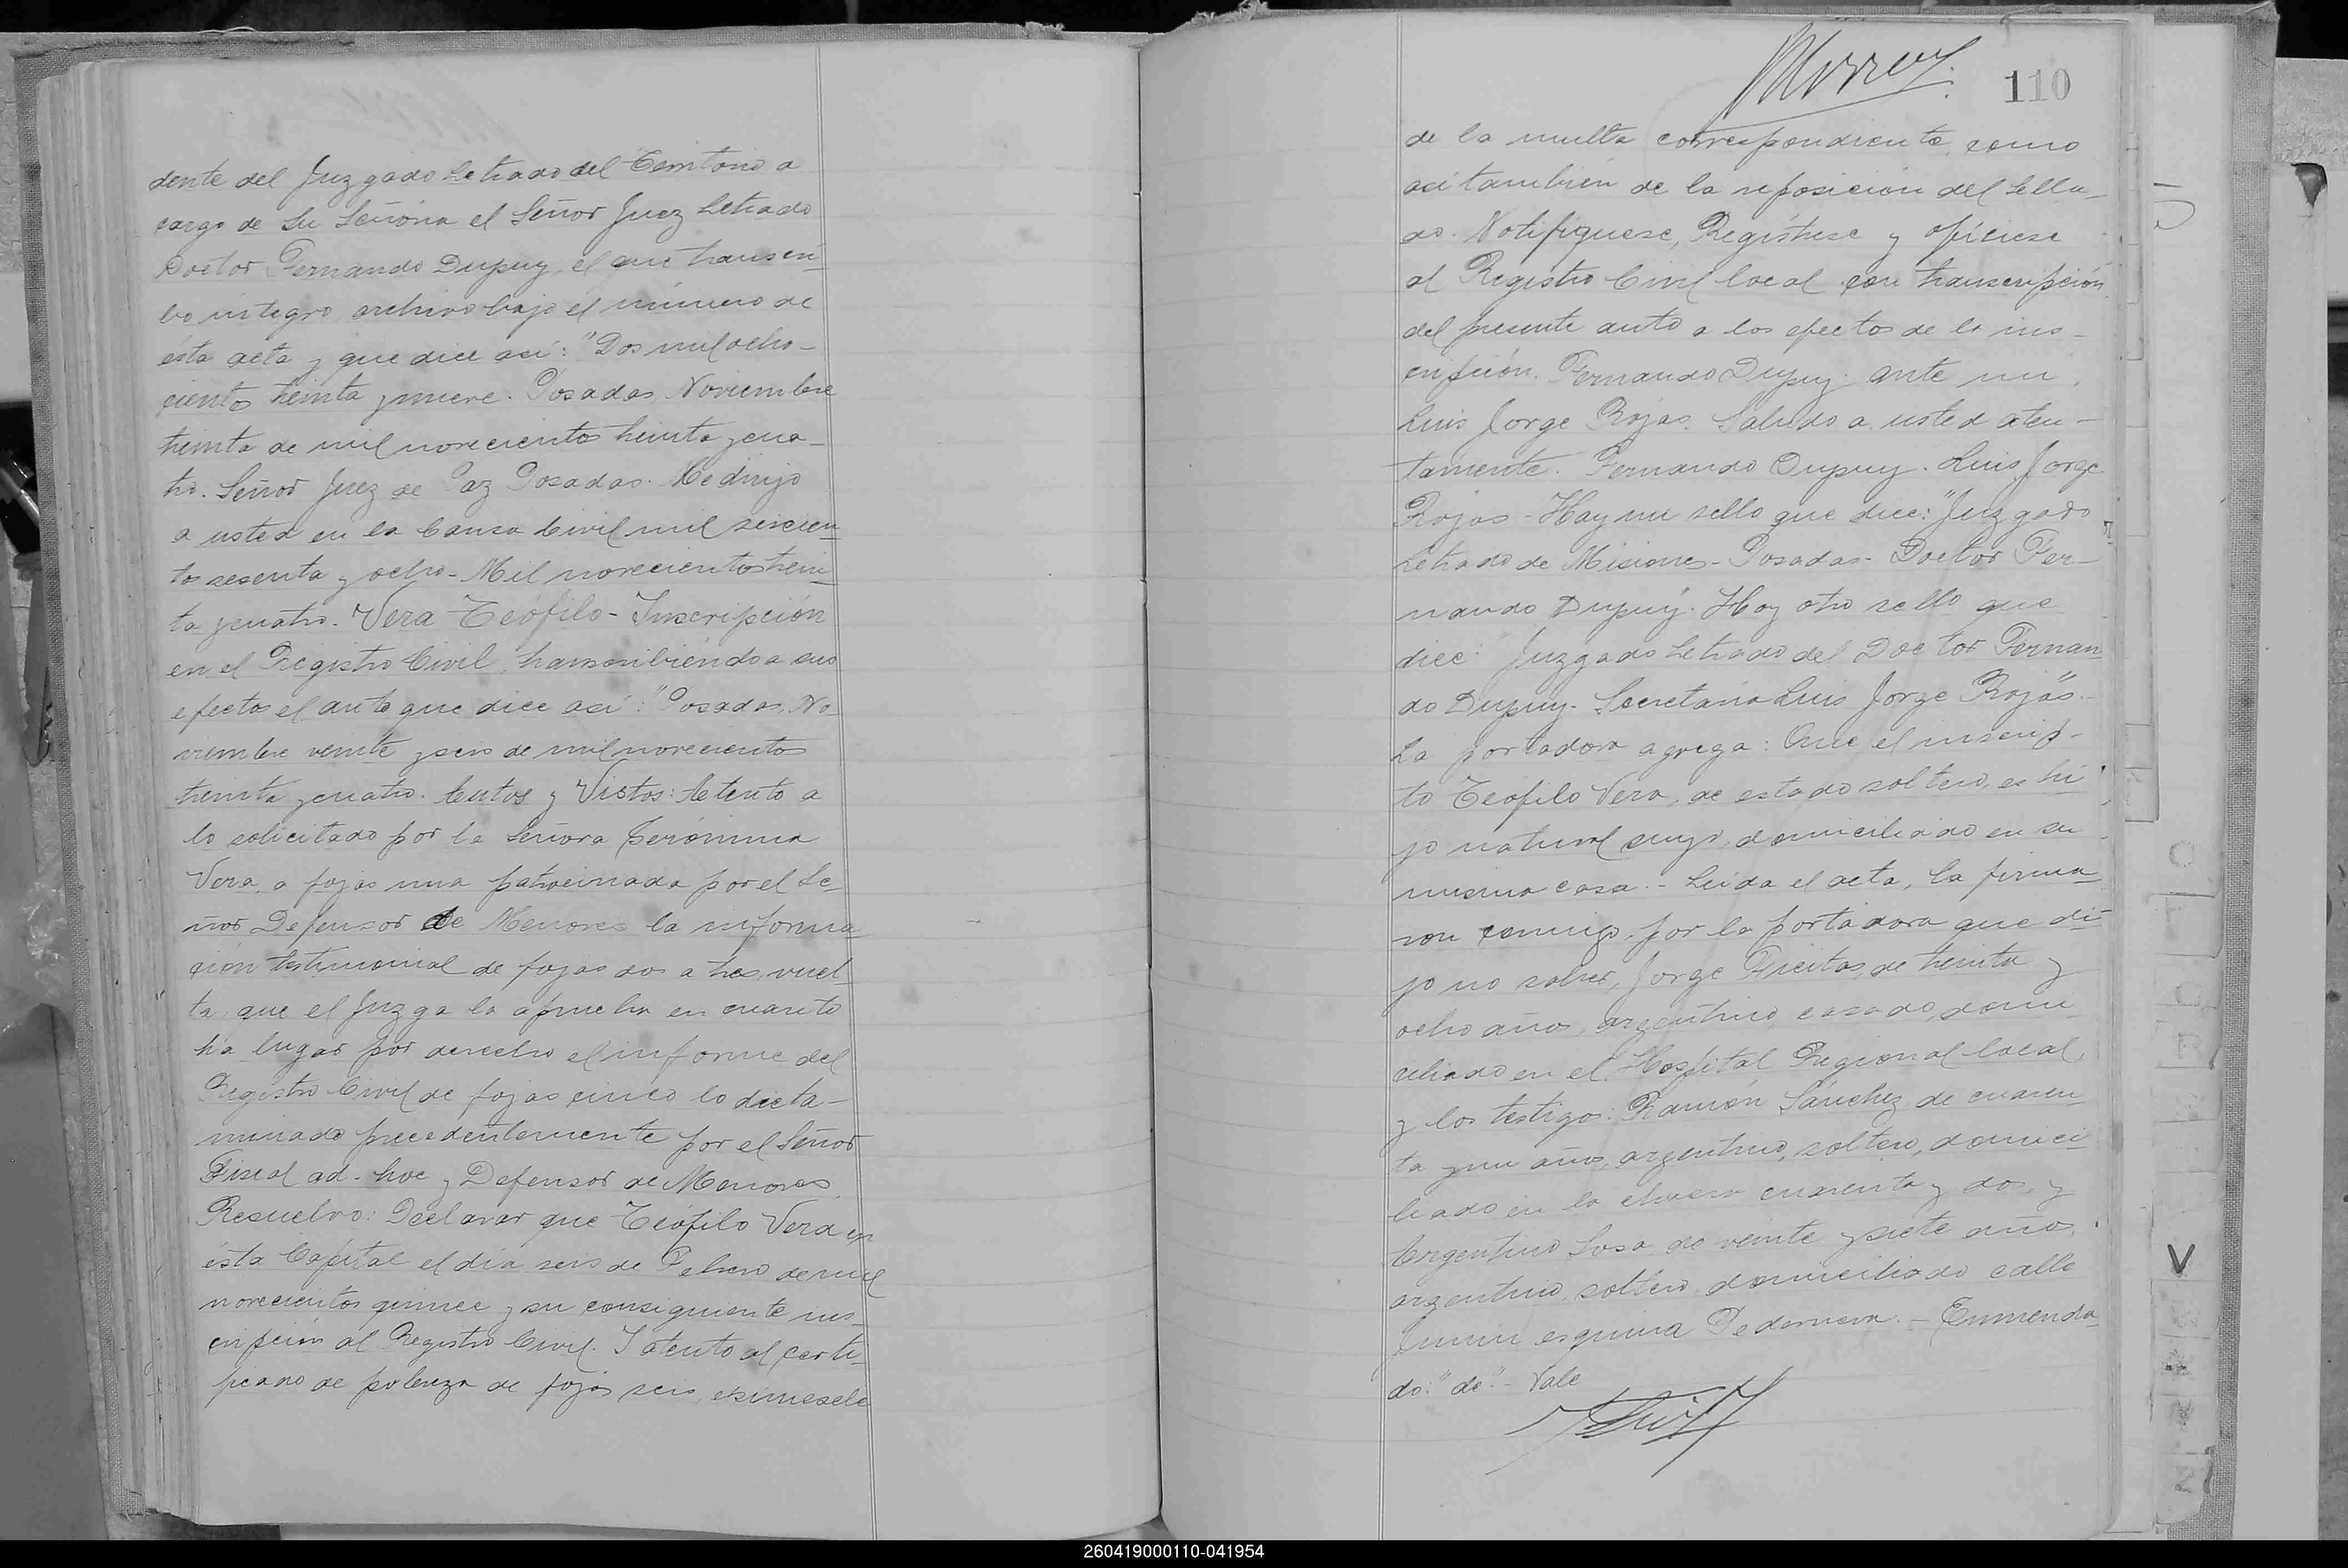 dente del Juzgado Letrado del Territorio a
cargo de Su Señoría el Señor Juez Letrado
Doctor Fernando Dupuy, el que transcri-
bo íntegro, archivo bajo el número de
ésta acta y que dice así: "Dos mil ocho-
cientos treinta y nueve. Posadas, Noviembre
treinta de mil novecientos treinta y cua-
tro. Señor Juez de Paz Posadas. Me dirijo
a usted en la Causa Civil mil seiscien-
tos sesenta y ocho - Mil novecientos trein-
ta y cuatro. Vera Teófilo - Inscripción
en el Registro Civil, transcribiendo a sus
efectos el auto que dice así: "Posadas, No-
viembre veinte y seis de mil novecientos
treinta y cuatro. Autos y Vistos: Atento a
lo solicitado por la Señora Gerónima
Vera, a fojas una patrocinada por el Se-
ñor Defensor de Menores la informa-
ción testimonial de fojas dos a tres vuel-
ta, que el Juzga la aprueba en cuanto
ha lugar por derecho el informe del
Registro Civil de fojas cinco lo dicta-
minado precedentemente por el Señor
Fiscal ad-hoc y Defensor de Menores,
Resuelvo: Declarar que Teófilo Vera en
ésta Capital el día seis de Febrero de mil
novecientos quince y su consiguiente ins-
cripción al Registro Civil. Y atento al certi-
ficado de pobreza de fojas seis, exímesele
110
de la multa correspondiente, como
así también de la reposición del Sella-
do. Notifíquese, Regístrese y ofíciese
al Registro Civil local con transcripción
del presente auto a los efectos de la ins-
cripción. Fernando Dupuy. ante mi,
Luis Jorge Rojas. Saludo a usted aten-
tamente. Fernando Dupuy. Luis Jorge
Rojas - Hay un sello que dice: "Juzgado
Letrado de Misiones - Posadas - Doctor Fer-
nando Dupuy. Hay otro sello que
dice: "Juzgado Letrado del Doctor Fernan-
do Dupuy. Secretaría Luis Jorge Rojas".-
La portadora agrega: Que el inscrip-
to Teófilo Vera, de estado soltero, es hi-
jo natural suyo, domiciliado en su
misma casa.- Leída el acta, la firma-
ron conmigo, por la portadora que di-
jo no saber, Jorge Freitas, de treinta y
ocho años, argentino, casado, domi-
ciliado en el Hospital Regional local,
y los testigos: Ramón Sánchez de cuaren-
ta y un años, argentino, soltero, domici-
liado en la chacra cuarenta y dos, y
Argentino Sosa, de veinte y siete años,
argentino, soltero, domiciliado calle
Junín esquina Pedernera.- Enmenda-
do: "de" - Vale
V
260419000110-041954